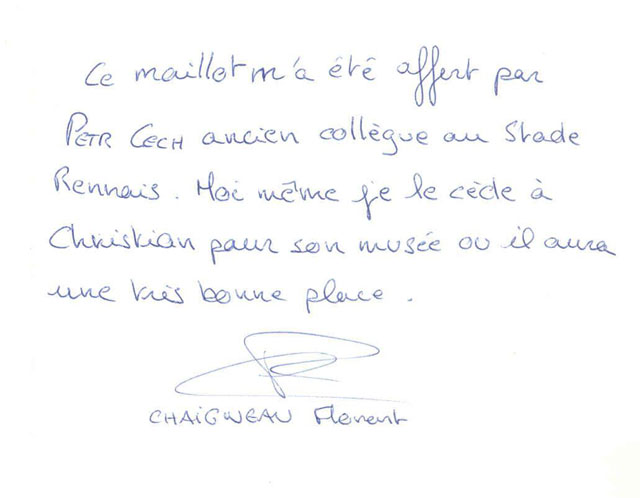 Ce maillot m'a été offert par
PETR CECH ancien collègue au Stade
Rennais. Moi même je le cède à
Christian pour son musée ou il aura
une très bonne place.
CHAIGNEAU Florent